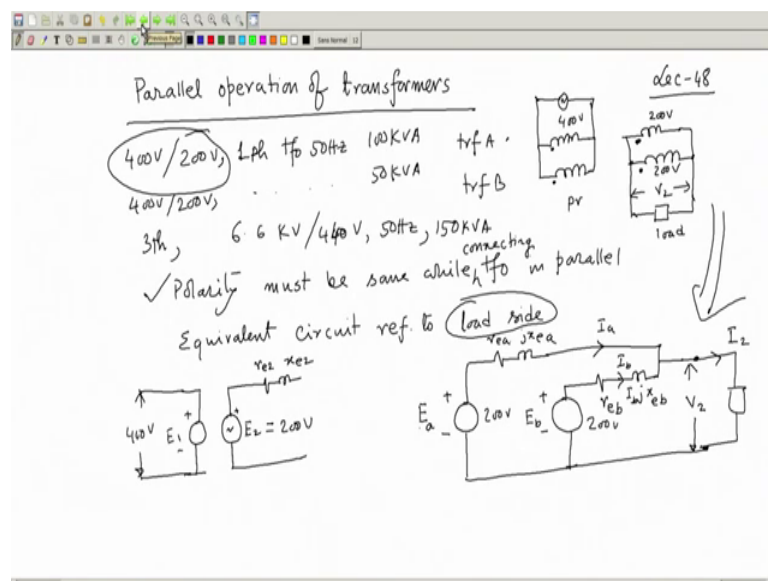 Previous Page
Sans Normal 12
Parallel operation of transformers
Lec-48
400V/200V, 1ph tfo 50Hz 100KVA trf A.
400V/200V, ..... 50KVA trf B
3ph, 6.6 KV/440V, 50Hz, 150KVA
✓ Polarity must be same while connecting tfo in parallel
Equivalent circuit ref. to load side
400V
pr
200V
200V
V2
load
re2 xe2
400V
E1
+
-
E2 = 200V
+
rea jxea
Ia
I2
Ib
reb
jxeb
Ea
+
-
200V
Eb
+
-
200V
V2